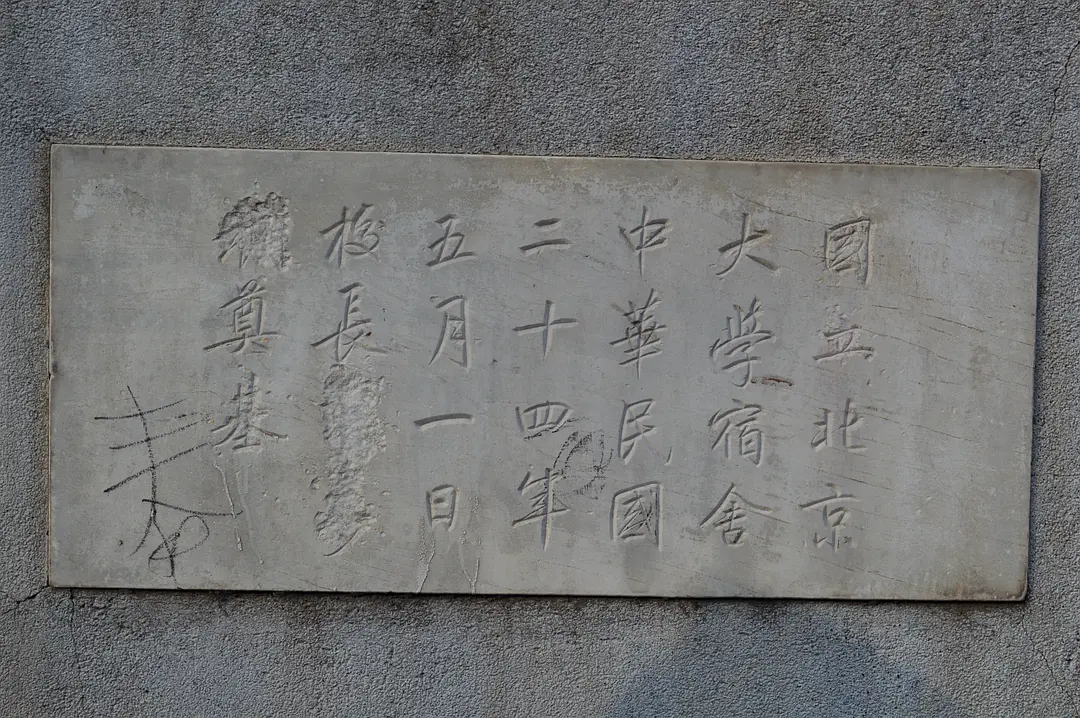 國立北京
大学宿舍
中華民國
二十四年
五月一日
校長
奠基